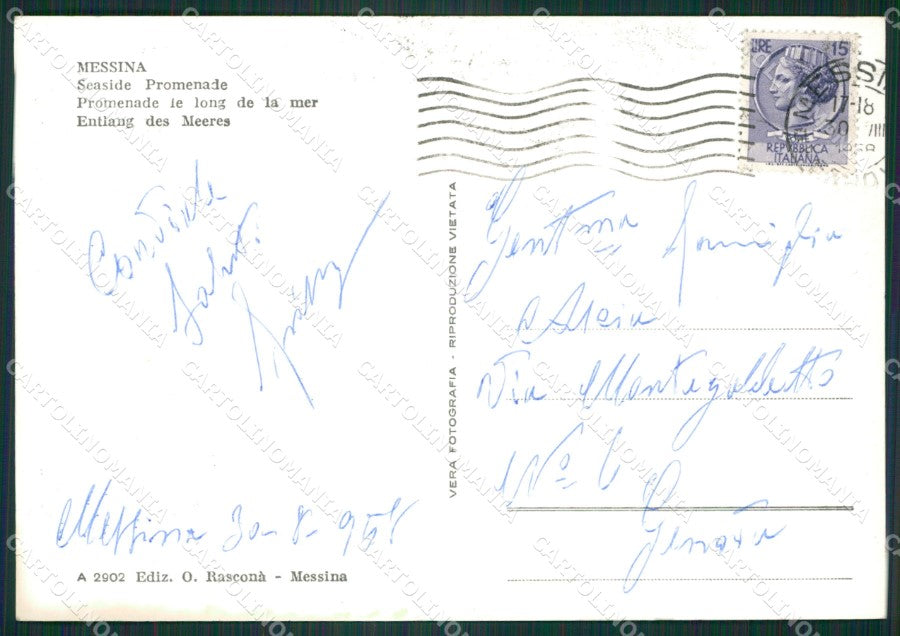 MESSINA
Seaside Promenade
Promenade le long de la mer
Entlang des Meeres
LIRE 15
REPUBBLICA
ITALIANA
MESSINA
17-18
30 VIII
Saluti
VERA FOTOGRAFIA - RIPRODUZIONE VIETATA
Gentma Famiglia
Via Montegalletto
N° 6
Genova
Messina 30-8-958
A 2902 Ediz. O. Rasconà - Messina
CARTOLINOMANIA